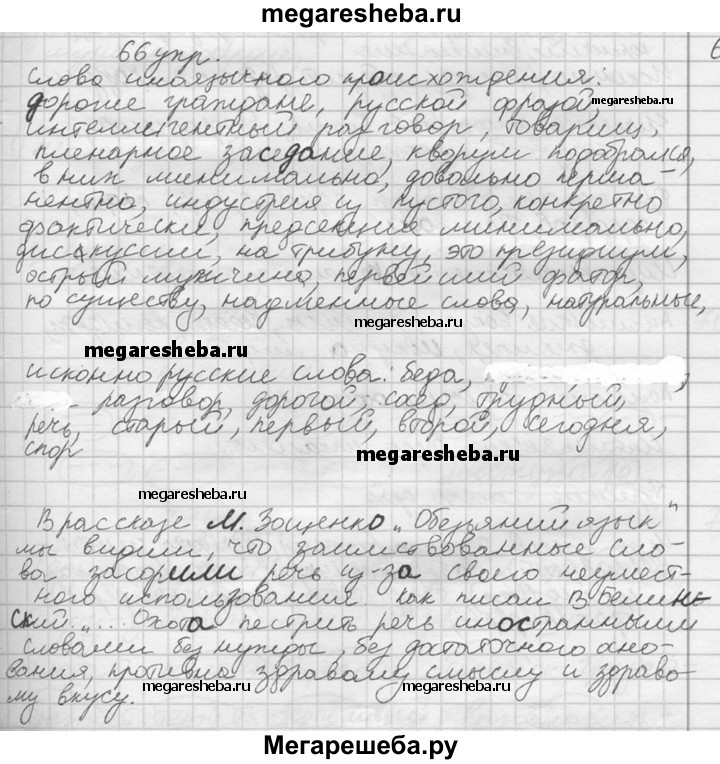 megaresheba.ru
66 упр.
Слова иноязычного происхождения:
дорогие граждане, русской фразой,
megaresheba.ru
интеллегентный разговор, товарищ,
пленарное заседание, кворум подобрался,
в них минимально, довольно перма-
нентно, индустрия из пустого, конкретно
фактически, предсекция минимально,
дискуссии, на трибуну, это президиум,
острый мужчина, первейший оратор,
по существу, надменные слова, натуральные,
megaresheba.ru
megaresheba.ru
исконно русские слова: беда,
разговор, дорогой, сосед, трудный,
речь, старый, первый, второй, сегодня,
спор
megaresheba.ru
megaresheba.ru
В рассказе М. Зощенко „Обезьяний язык"
мы видим, что заимствованные сло-
ва засорили речь из-за своего неумест-
ного использования. Как писал В Белинс-
ский „... Охота пестрить речь иностранными
словами без нужды, без достаточного осно-
вания, противна здравому смыслу и здраво-
му вкусу.
megaresheba.ru
megaresheba.ru
Мегарешеба.ру